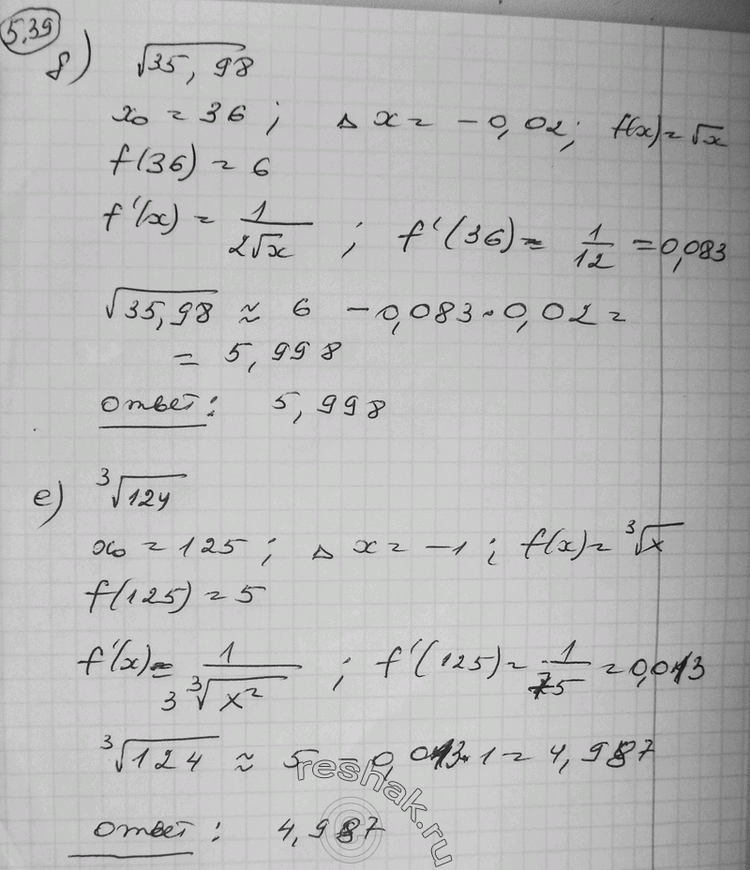 5.39
д) √35,98
x₀ = 36 ; Δx = -0,02; f(x) = √x
f(36) = 6
f'(x) = 1/(2√x) ; f'(36) = 1/12 = 0,083
√35,98 ≈ 6 - 0,083·0,02 =
= 5,998
ответ: 5,998
е) ³√124
x₀ = 125 ; Δx = -1 ; f(x) = ³√x
f(125) = 5
f'(x) = 1/(3³√x²) ; f'(125) = 1/75 = 0,013
³√124 ≈ 5 - 0,013·1 = 4,987
ответ : 4,987
reshak.ru